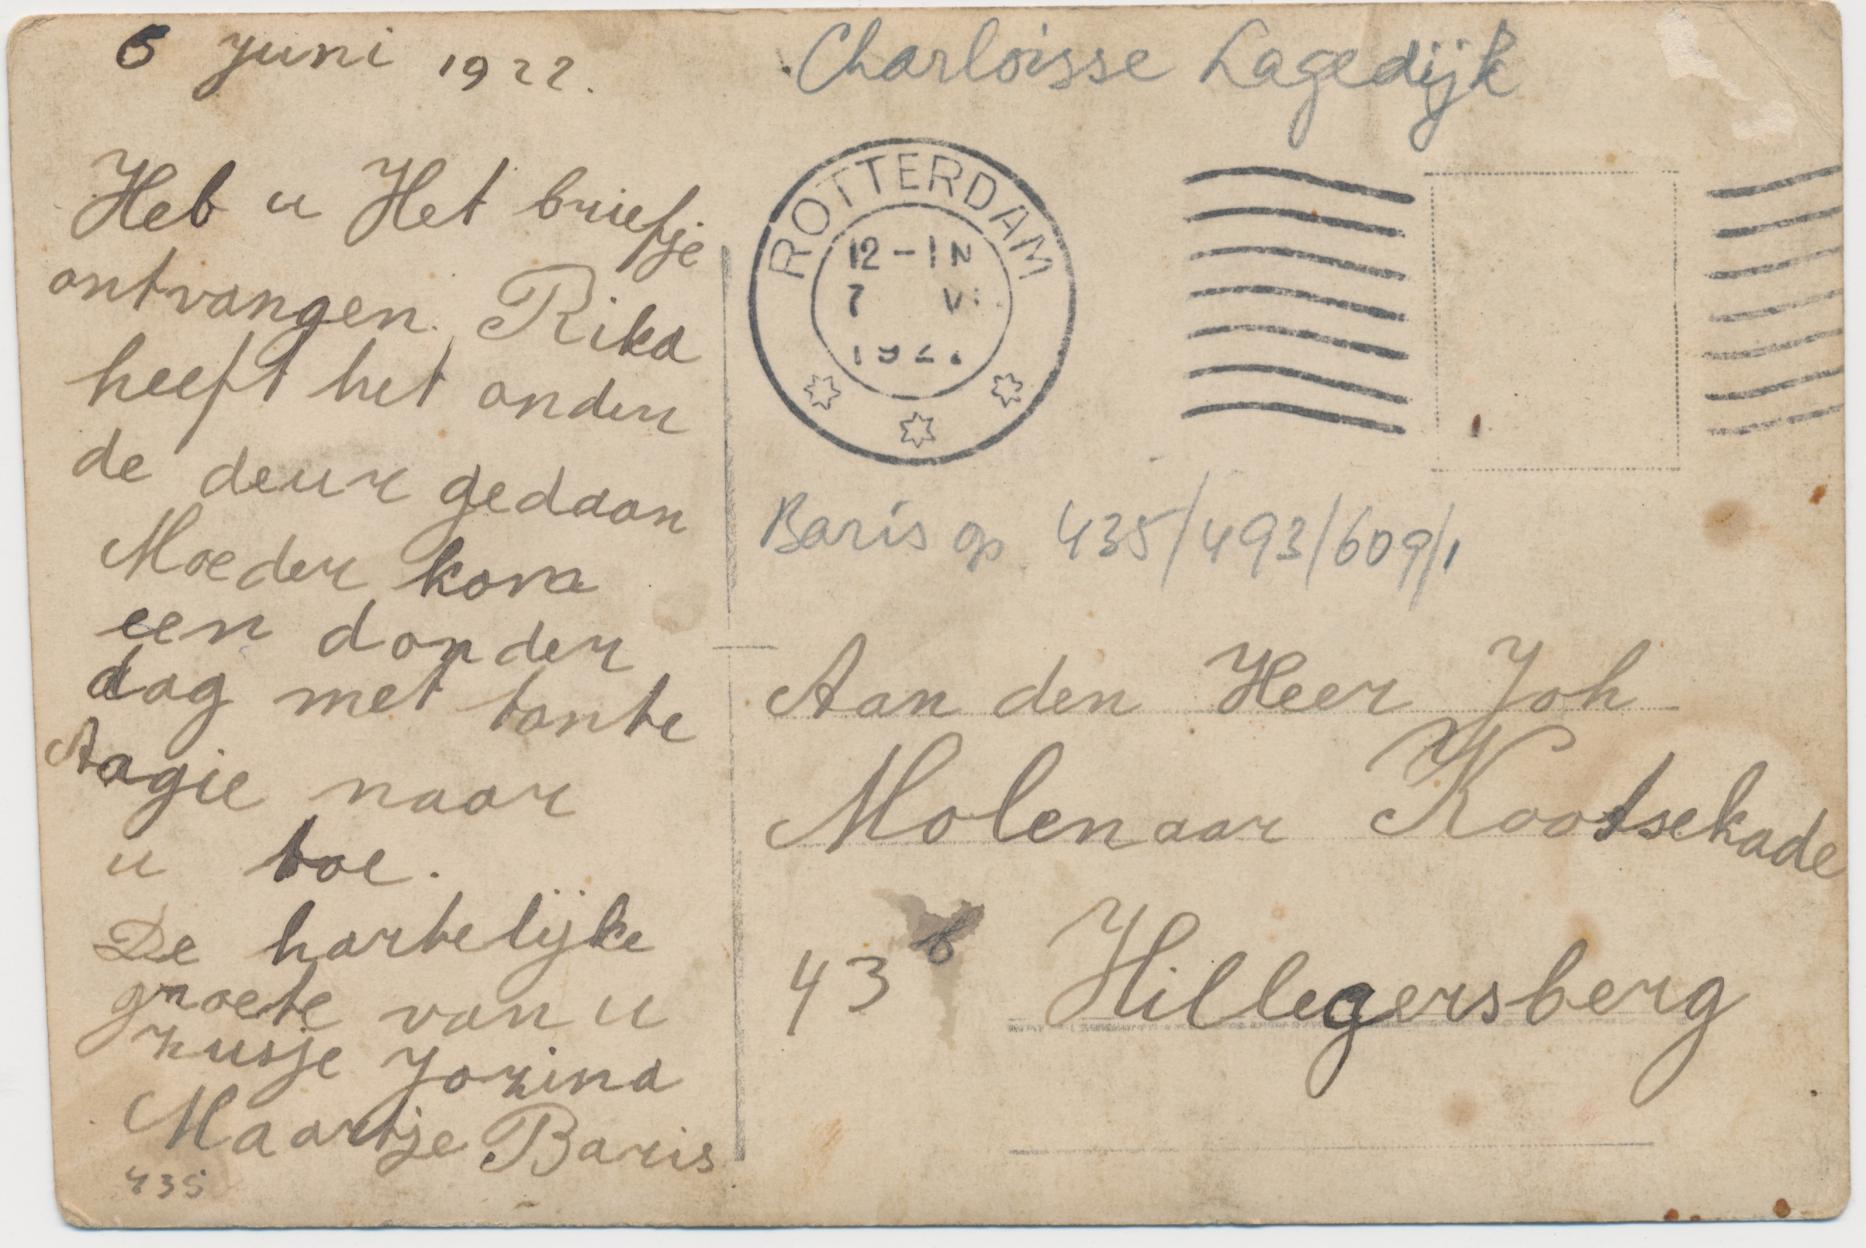 6 Juni 1922.
Heb u Het briefje
ontvangen. Rika
heeft het onder
de deur gedaan
Moeder kom
een donder
dag met tante
Aagie naar
u toe.
De hartelijke
groete van u
zusje Jozina
Maartje Baris
435
Charloisse Lagedijk
ROTTERDAM
12-1N
7 VI
192
Baris op 435/493/609/1
Aan den Heer Joh
Molenaar Kootsekade
43 b Hillegersberg